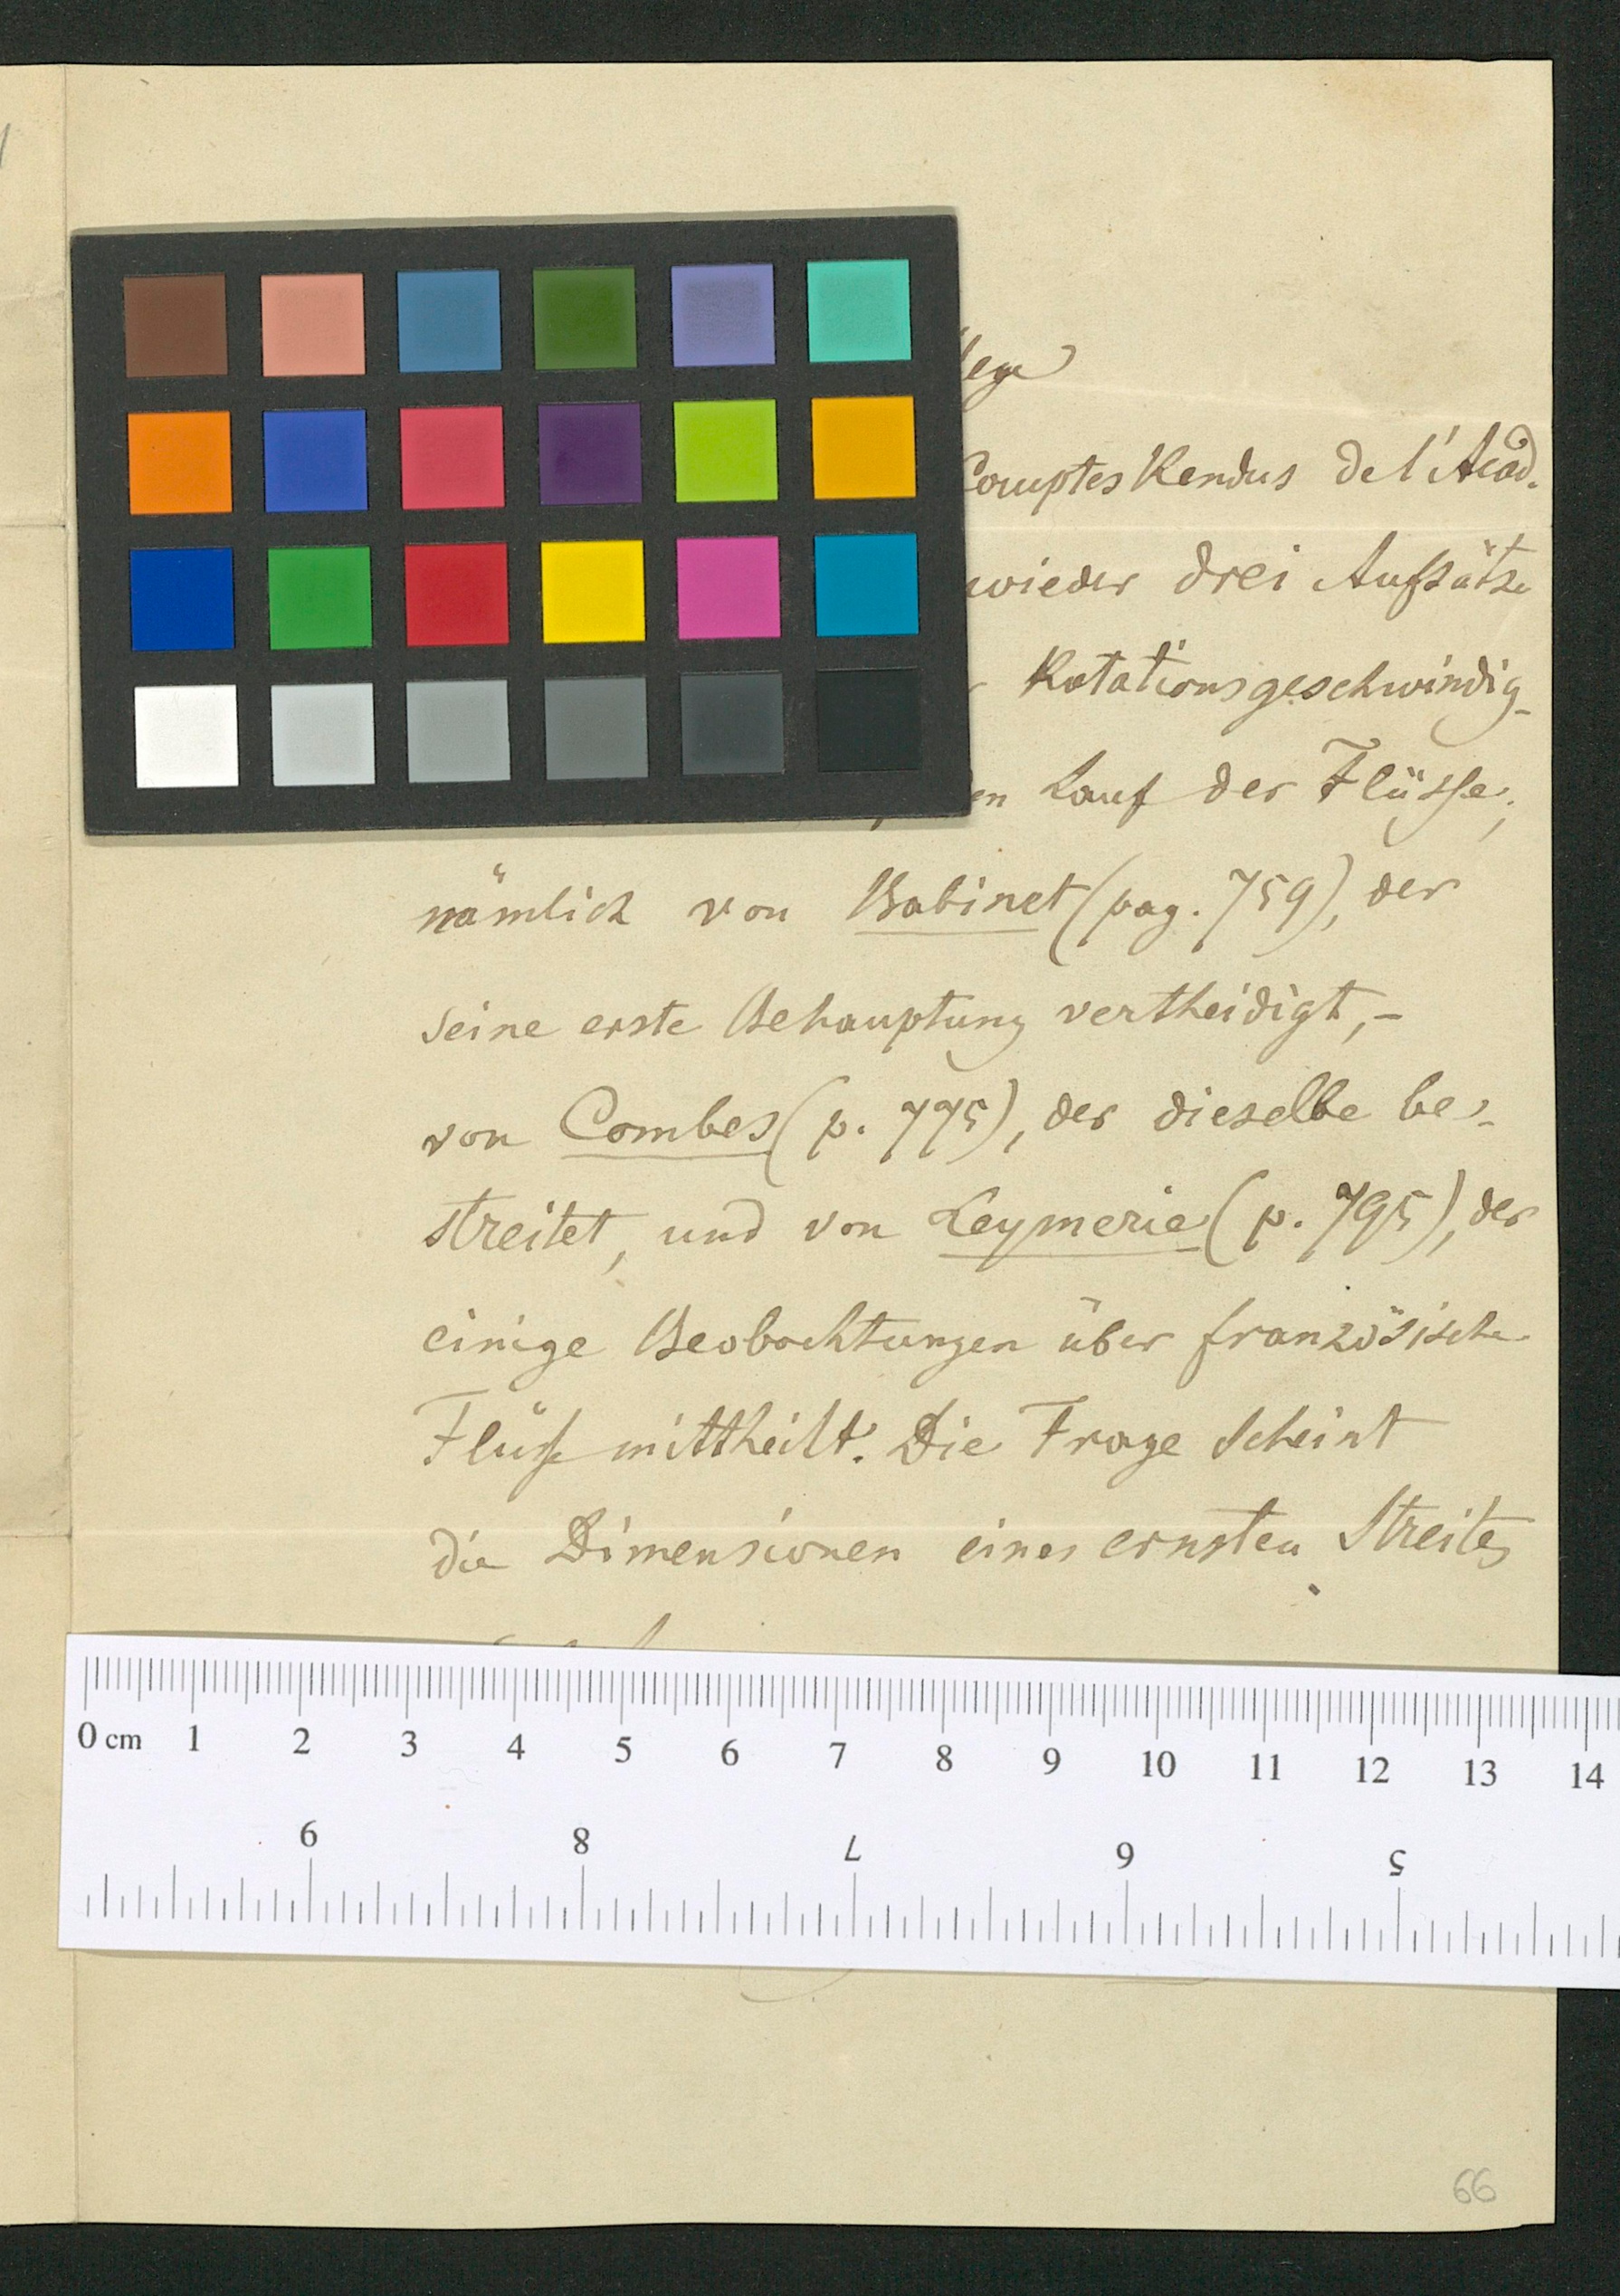 Comptes Rendus de l'Acad.
wieder drei Aufsätze
Rotationsgeschwindig-
Lauf der Flüsse,
nämlich von Babinet (pag. 759), der
seine erste Behauptung vertheidigt, -
von Combes (p. 775), der dieselbe be-
streitet, und von Leymerie (p. 795), der
einige Beobachtungen über französische
Flüße mittheilt. Die Frage scheint
die Dimensionen eines ernsten Streites
0 cm 1 2 3 4 5 6 7 8 9 10 11 12 13 14
9 8 7 6 5
66